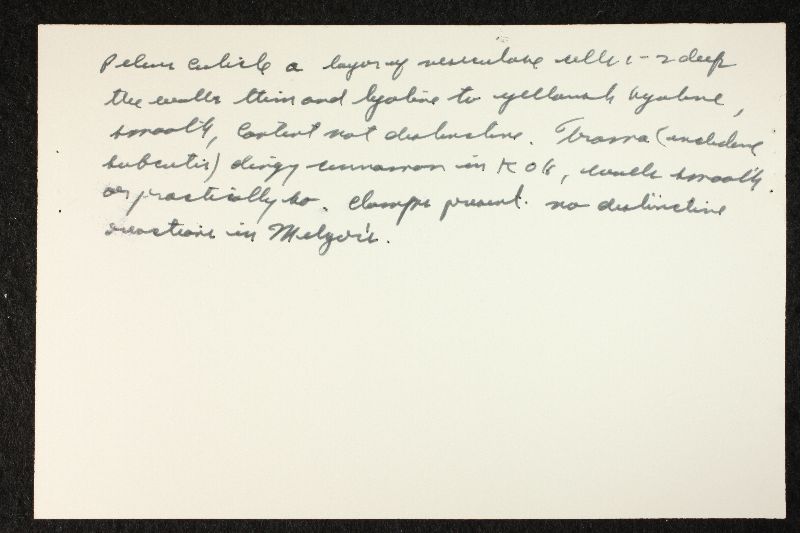 Pileus cuticle a layer of vesiculose cells 1-2 deep
the walls thin and hyaline to yellowish hyaline,
smooth, content not distinctive. Trama (including
subcutis) dingy cinnamon in KOH, walls smooth
or practically so. Clamps present. no distinctive
reactions in Melzer's.